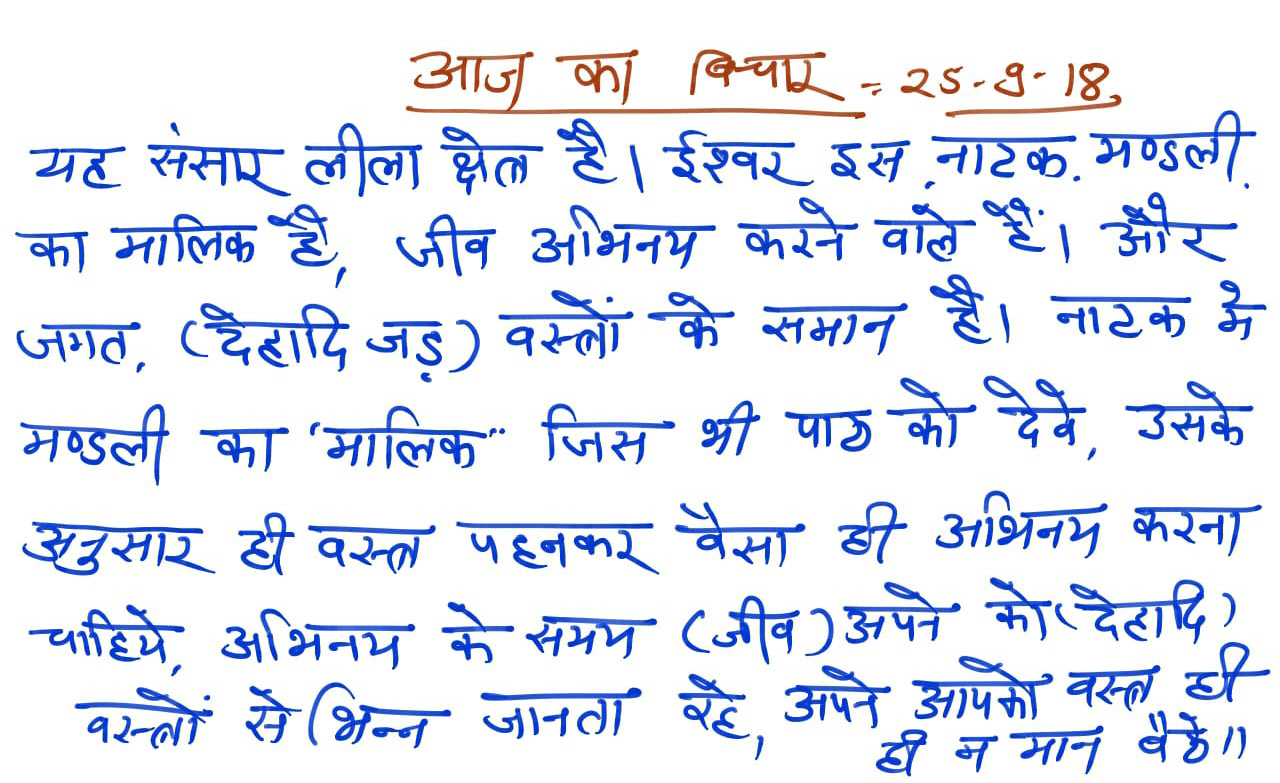 आज का विचार = 25-9-18.
यह संसार लीला क्षेत्र है। ईश्वर इस नाटक मण्डली
का मालिक है, जीव अभिनय करने वाले हैं। और
जगत, (देहादि जड़) वस्त्रों के समान है। नाटक मे
मण्डली का "मालिक" जिस भी पाठ को देवे, उसके
अनुसार ही वस्त्र पहनकर वैसा ही अभिनय करना
चाहिये, अभिनय के समय (जीव) अपने को (देहादि)
वस्त्रों से भिन्न जानता रहे, अपने आपको वस्त्र ही
ही न मान बैठे॥